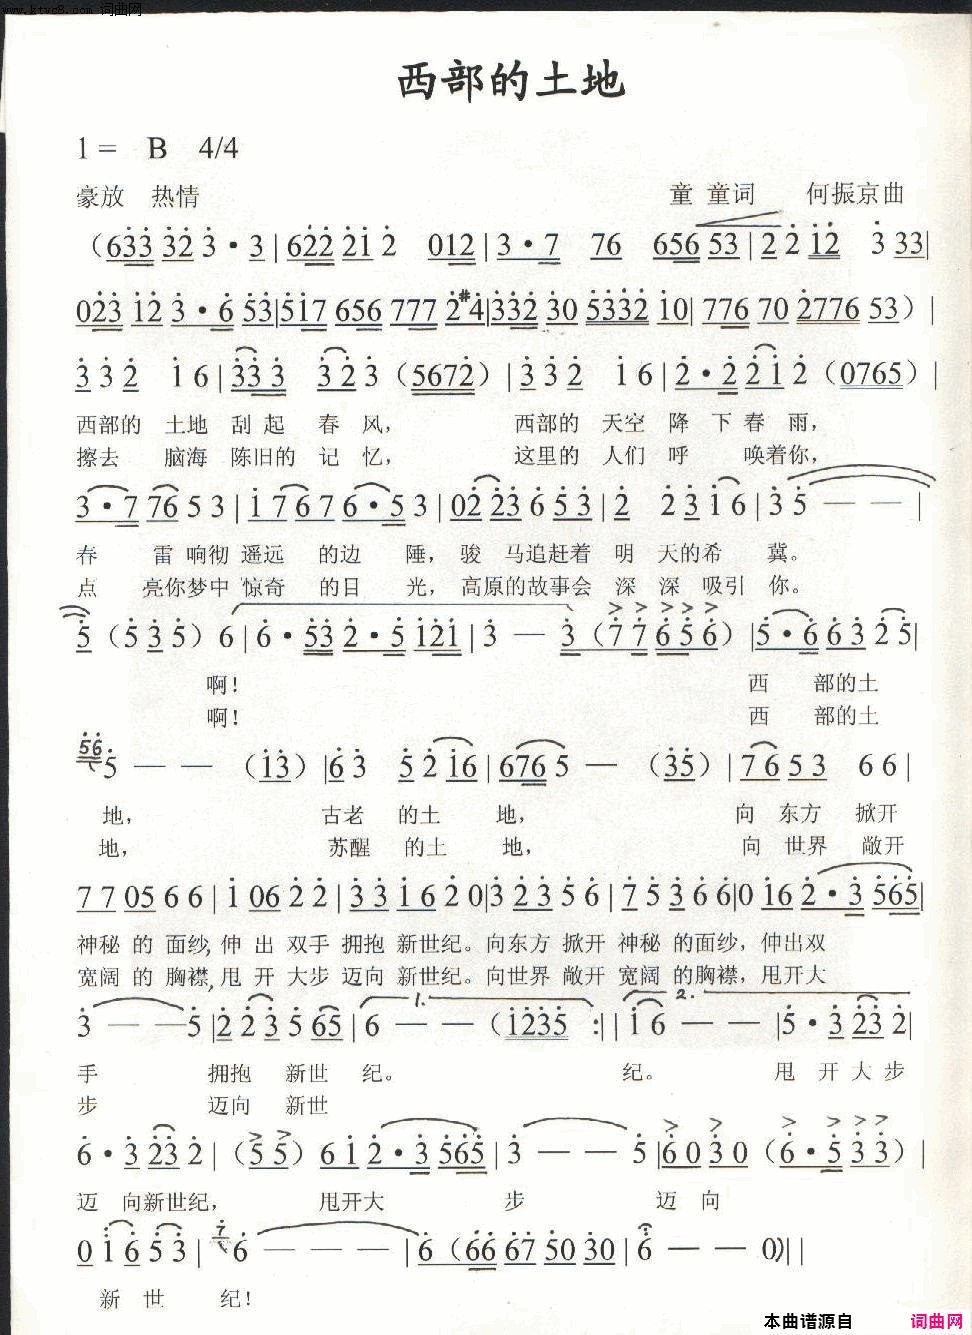 www.ktvc8.com 词曲网
西部的土地
1= B 4/4
豪放 热情 童 童词 何振京曲
(633 323·3|622 221 2 012|3·7 76 656 53|2 2 12 3 33|
023 12 3·6 53|517 656 777 2#4|332 30 5332 10|776 70 2776 53)|
3 3 2 1 6|333 3 2 3(5672)|3 3 2 1 6|2·2 2 1 2(0765)|
西部的 土地 刮 起 春 风, 西部的 天空 降 下 春 雨,
擦去 脑海 陈旧的 记 忆, 这里的 人们 呼 唤着你,
3·7 76 5 3|1 7 6 7 6·5 3|02 23 6 53|2 2 3 1 6|3 5 — —|
春 雷 响彻 遥远 的边 陲, 骏 马追赶着 明 天的希 冀。
点 亮你梦中 惊奇 的目 光, 高原的故事会 深 深 吸引 你。
5(5 3 5)6|6·53 2·5 121|3 — 3(7 7 6 5 6)|5·6 6 3 2 5|
啊! 西 部的土
啊! 西 部的土
56 5 — — (13)|6 3 5 2 16|676 5 — (35)|76 53 66|
地, 古老 的土 地, 向 东方 掀开
地, 苏醒 的土 地, 向 世界 敞开
77 05 66|1 06 2 2|33 16 20|3 23 5 6|7 5 3 6 6|0 16 2·3 565|
神秘 的 面纱, 伸 出 双手 拥抱 新世纪。向东方 掀开 神秘 的面纱, 伸出双
宽阔 的 胸襟, 甩 开 大步 迈向 新世纪。向世界 敞开 宽阔 的胸襟, 甩开大
3 — — 5|22 3 5 65|1. 6 — — (1235 :||2. 1 6 — —|5·3 23 2|
手 拥抱 新世 纪。 纪。 甩 开 大 步
步 迈向 新世
6·3 23 2|(5 5) 61 2·3 565|3 — — 5|60 30 (6·5 3 3)|
迈 向新世纪, 甩开大 步 迈 向
0 1 6 5 3|7 6 — — —|6(66 67 50 30|6 — — 0)||
新 世 纪!
本曲谱源自 词曲网